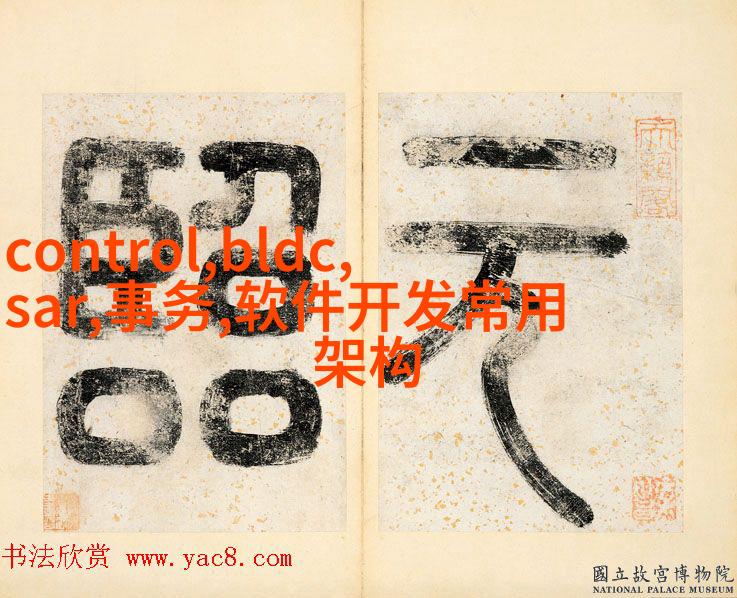 control,bldc,
sar,事务,软件开发常用
架构
元
书法欣赏 www.yac8.com
國立故宮博物院
NATIONAL PALACE MUSEUM